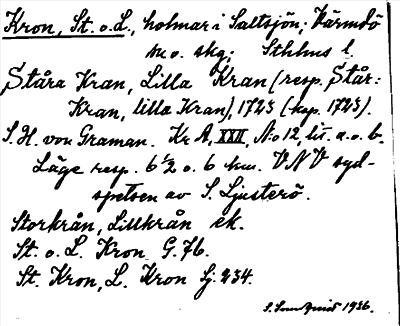 Kron, St. o. L., holmar i Saltsjön; Värmdö
m o. skg; Sthlms l.
Ståra Kran, Lilla Kran (resp. Står:
Kran, lilla Kran), 1723 (kop. 1723).
S. H. von Graman. Kr A, XXII, No 12, lit. a. o. b.
Läge resp. 6 1/2 o. 6 km. VNV syd-
spetsen av S. Ljusterö.
Storkrån, Lillkrån ek.
St. o. L. Kron G. 76.
St. Kron, L. Kron Sj. 234.
1936.